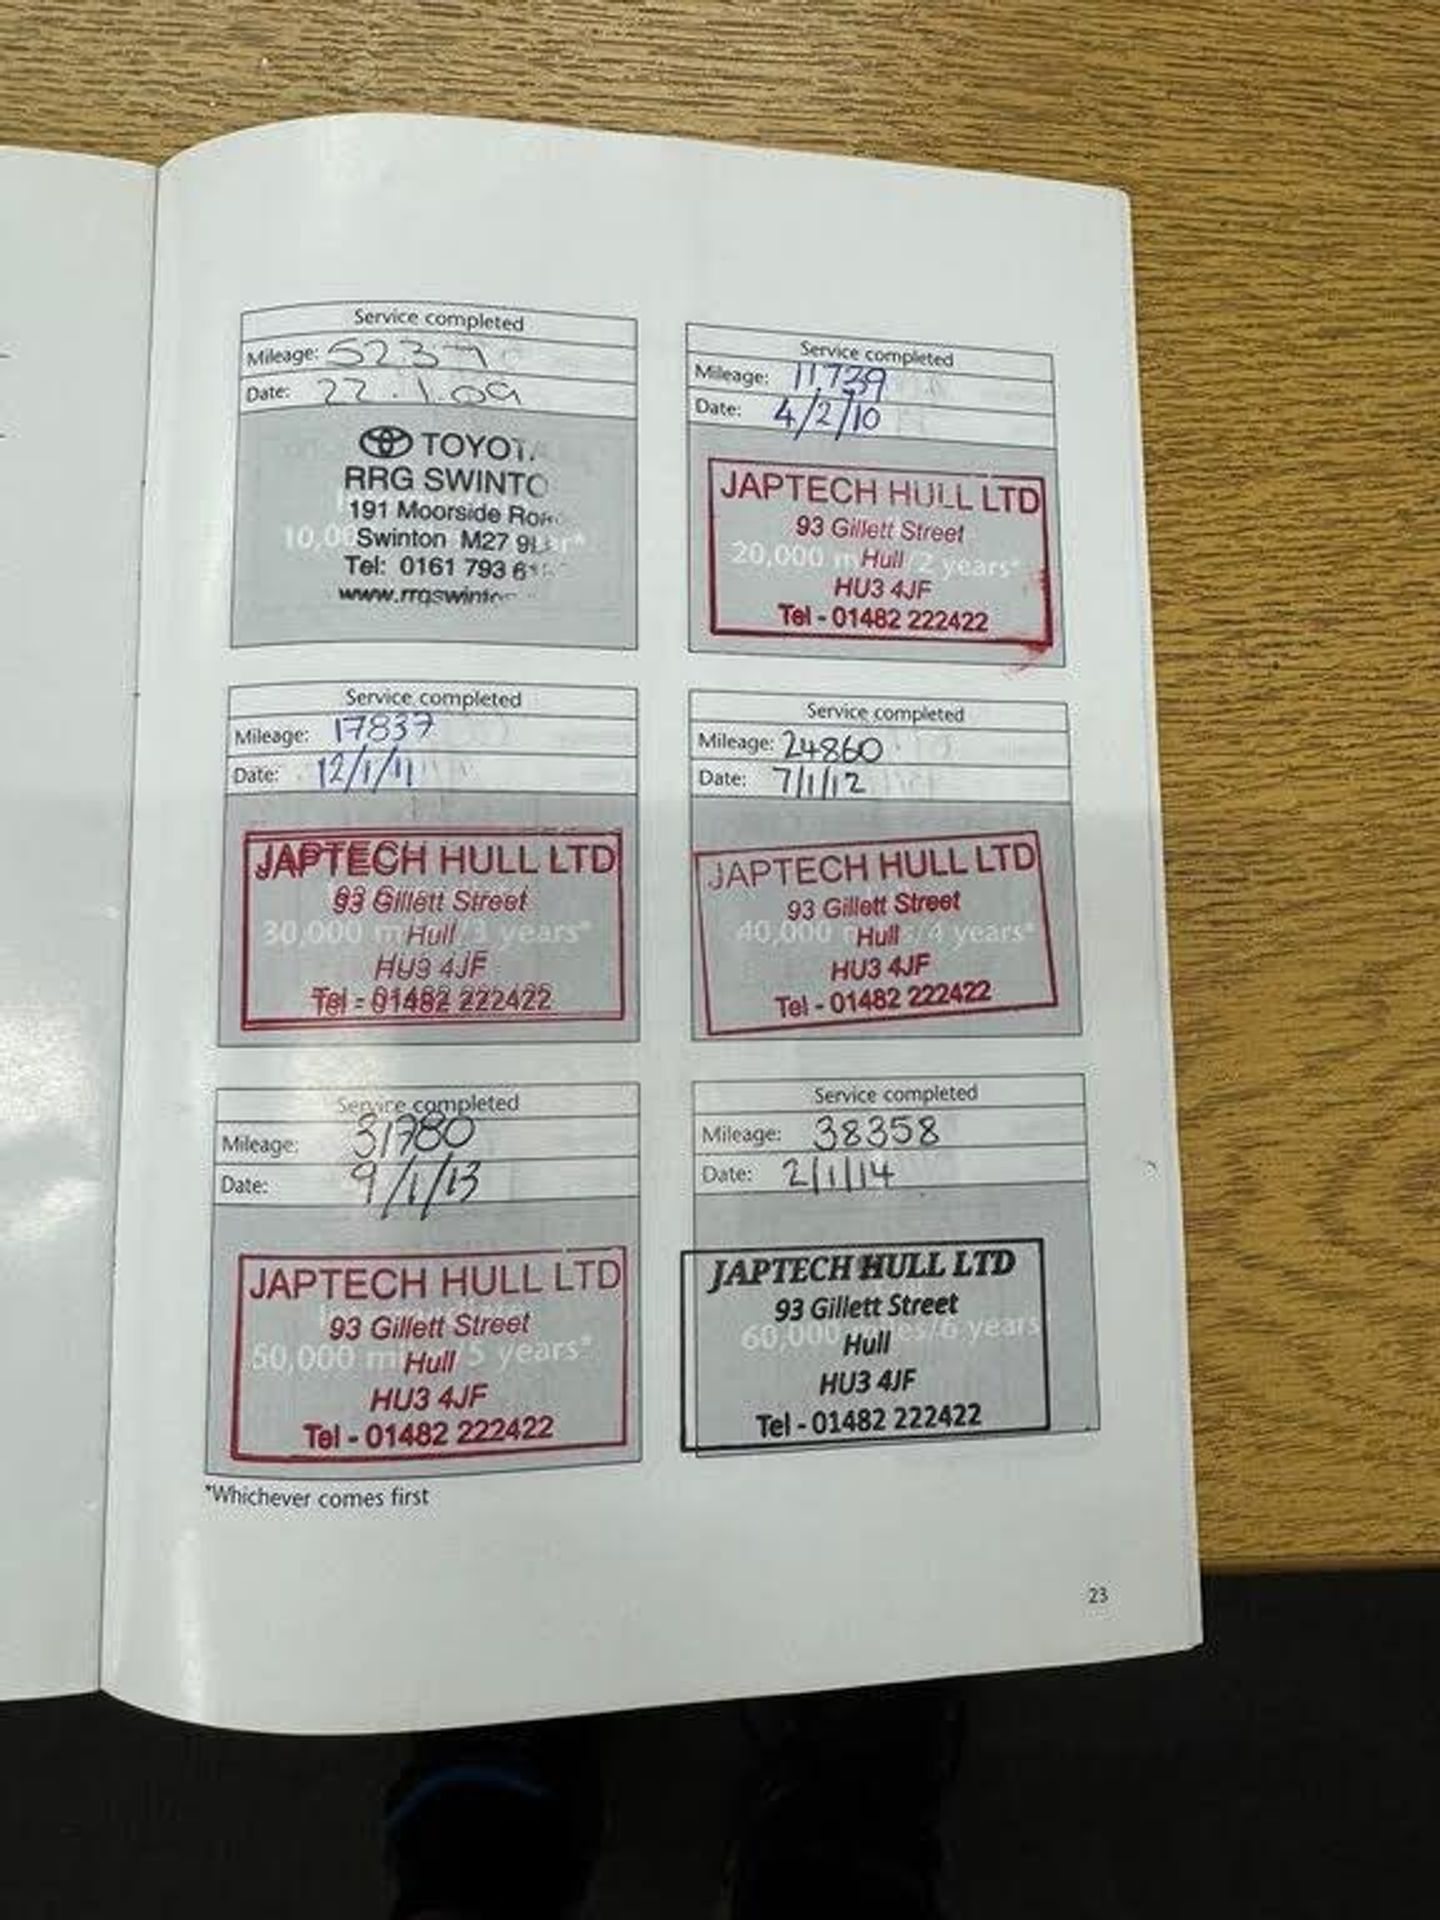 Service completed
Mileage: 5237
Date: 22.1.09
TOYOTA
RRG SWINTO
191 Moorside Roa
10,00
Swinton M27 9L
Tel: 0161 793 61
www.rrgswinton
Service completed
Mileage: 11739
Date: 4/2/10
JAPTECH HULL LTD
93 Gillett Street
20,000 m /2 years*
Hull
HU3 4JF
Tel - 01482 222422
Service completed
Mileage: 17837
Date: 12/1/11
JAPTECH HULL LTD
93 Gillett Street
30,000 m /3 years*
Hull
HU3 4JF
Tel - 01482 222422
Service completed
Mileage: 24860
Date: 7/1/12
JAPTECH HULL LTD
93 Gillett Street
40,000 /4 years*
Hull
HU3 4JF
Tel - 01482 222422
Service completed
Mileage: 31780
Date: 9/1/13
JAPTECH HULL LTD
93 Gillett Street
50,000 mi /5 years*
Hull
HU3 4JF
Tel - 01482 222422
Service completed
Mileage: 38358
Date: 2/1/14
JAPTECH HULL LTD
93 Gillett Street
60,000 miles/6 years
Hull
HU3 4JF
Tel - 01482 222422
*Whichever comes first
23